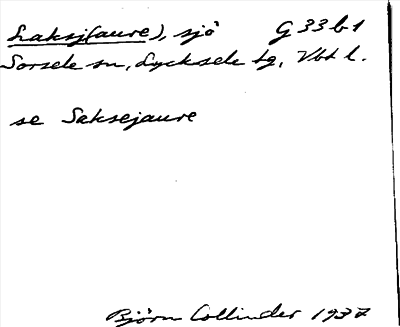 Laksj(aure), sjö G 33 b 1
Sorsele sn, Lycksele tg, Vbt l.
se Saksejaure
Björn Collinder 1937